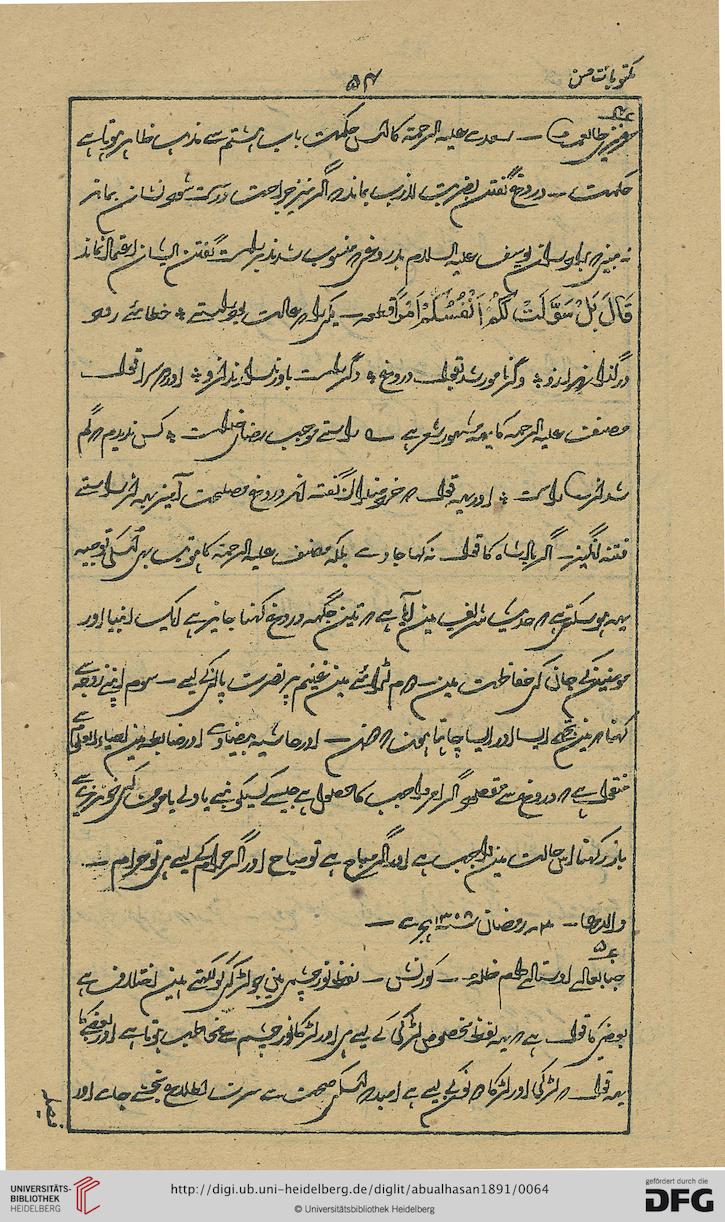 مکتوبات حسن
۵۴
عزیز طالعمرہ — سعدی علیہ الرحمۃ کا اس حکمت باب ہشتم سے مذہب ظاہر ہوتا ہے
حکمت — دروغ گفتن بضربت لازب بماند کہ اگر نیز جراحت درست شود نشان بماند
نہ بینی کہ برادران یوسف علیہ السلام بدروغی منسوب شدند بر راست گفتن ایشان اعتماد نماند
قَالَ بَلْ سَوَّلَتْ لَكُمْ اَنْفُسُكُمْ اَمْرًا قطعہ — یکے را کہ عادت بود راستی * خطائے رود
درگذارند ازو * وگر نامور شد بقول دروغ * دگر راست باور ندارند ازو * اور کہ سرا قول
مصنف علیہ الرحمہ کا یہہ مشہور شعر ہے ؎ راستی موجب رضای خداست * کس ندیدم کہ گم
شد از رہ راست * اور یہہ قول کہ خردمندان گفتہ اند دروغ مصلحت آمیز بہ از راستی
فتنہ انگیز — اگر بادشاہ کا قول نہ کہا جاوے بلکہ مصنف علیہ الرحمۃ کا ہو تب بہی اسکی توجیہ
یہہ ہو سکتی ہے کہ حدیث شریف مین آیا ہے کہ تین جگہہ دروغ کہنا جایز ہے ایک انبیا اور
مومنین کی جان کی حفاظت مین — دوم لڑائی مین غنیم پر نصرت پانے کے لیے — سوم اپنی زوجہ سے
کہنا کہ مین تجھے ایسا اور ایسا چاہتا ہون — اور حاشیہ بیضاوی اور احیاء العلوم سے
منقول ہے کہ دروغ سے مقصود اگر امر واجب کا حصول ہے جیسے کسی نبی یا ولی یا مومن کی خونریزی سے
باز رکہنا اس حالت مین واجب ہے اور اگر مباح ہے تو مباح اور اگر حرام کے لیے ہی تو حرام —
والدعا — رمضان ۱۳۰۵ ہجری —
جناب والدہ ظلہ — کورنش — لفظ نور چشمی مین جو لڑکی کو لکہتے ہین اختلاف ہے
بعض کا قول ہے کہ یہہ لفظ مخصوص لڑکی کے لیے ہی اور لڑکا نور چشم سے مخاطب ہوتا ہے اور بعض کا
یہہ قول کہ لڑکی اور لڑکا دونوں کے لیے ہے امید کہ اسکی صحت سے سرت اطلاع بخشی جاے اور
فیصلہ
UNIVERSITÄTS-
BIBLIOTHEK
HEIDELBERG
http://digi.ub.uni-heidelberg.de/diglit/abualhasan1891/0064
© Universitätsbibliothek Heidelberg
gefördert durch die
DFG